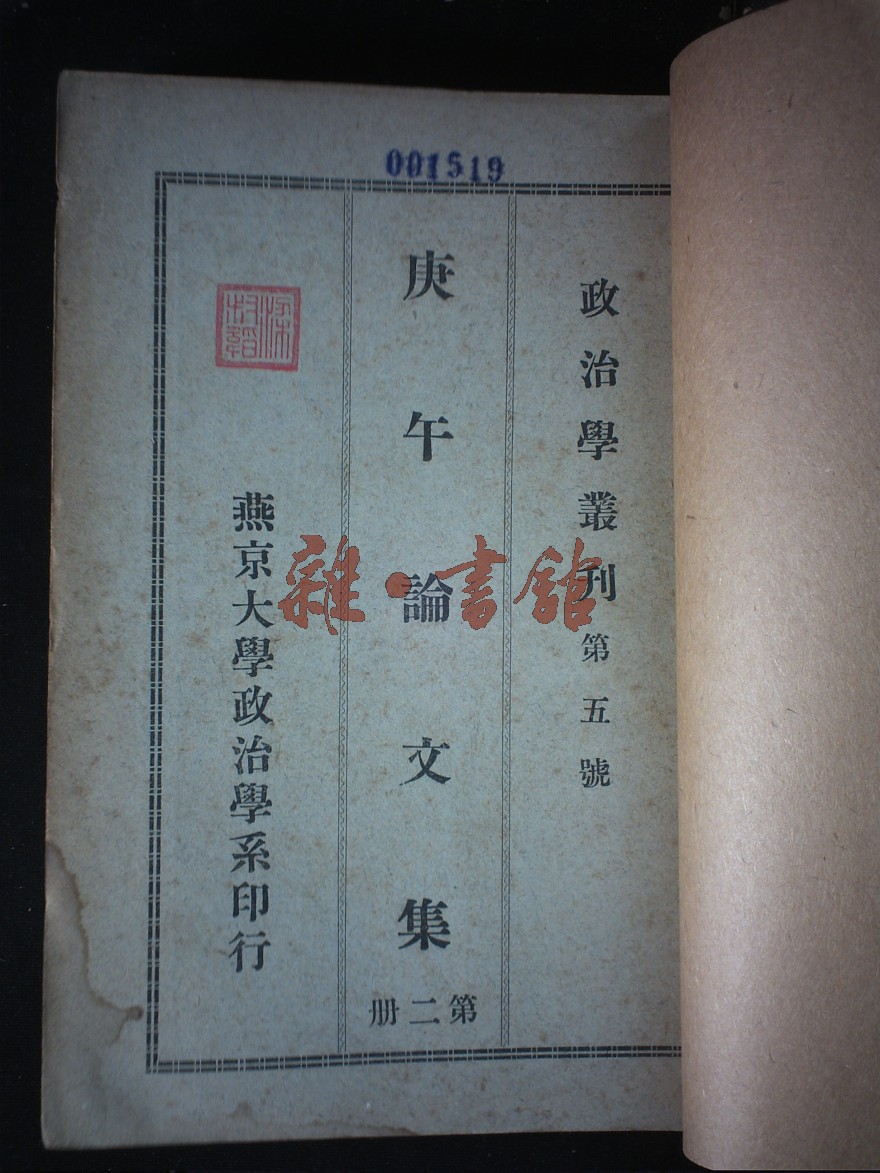 001519
政治學叢刊第五號
庚午論文集
第二册
燕京大學政治學系印行
雜·書館